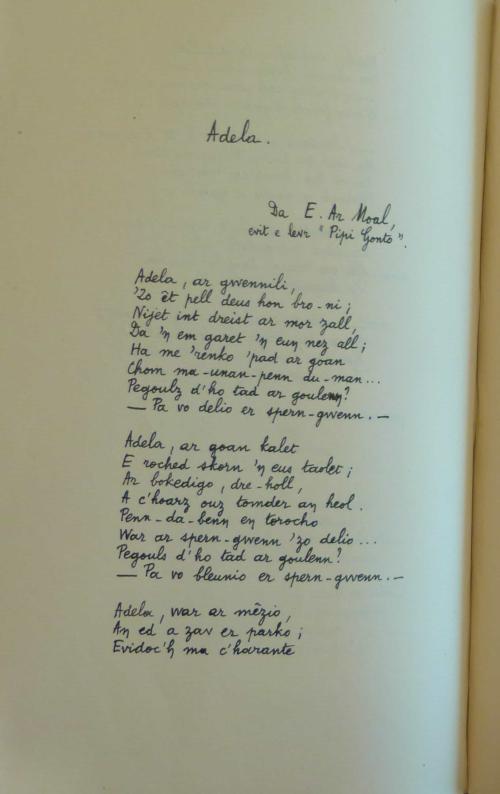 Adela.
Da E. Ar Moal,
evit e levr "Pipi Gonto".
Adela, ar gwennili,
'Zo êt pell deus hon bro-ni ;
Nijet int dreist ar mor zall,
Da 'n em garet 'n eun nez all ;
Ha me 'renko 'pad ar goan
Chom ma-unan-penn du-man...
Pegoulz d'ho tad ar goulenn ?
— Pa vo delio er spern-gwenn. —
Adela, ar goan kalet
E roched skorn 'n eus taolet ;
Ar bokedigo, dre-holl,
A c'hoarz ouz tomder an heol.
Penn-da-benn en torocho
War ar spern-gwenn 'zo delio...
Pegouls d'ho tad ar goulenn ?
— Pa vo bleunio er spern-gwenn. —
Adela, war ar mêzio,
An ed a zav er parko ;
Evidoc'h ma c'harante